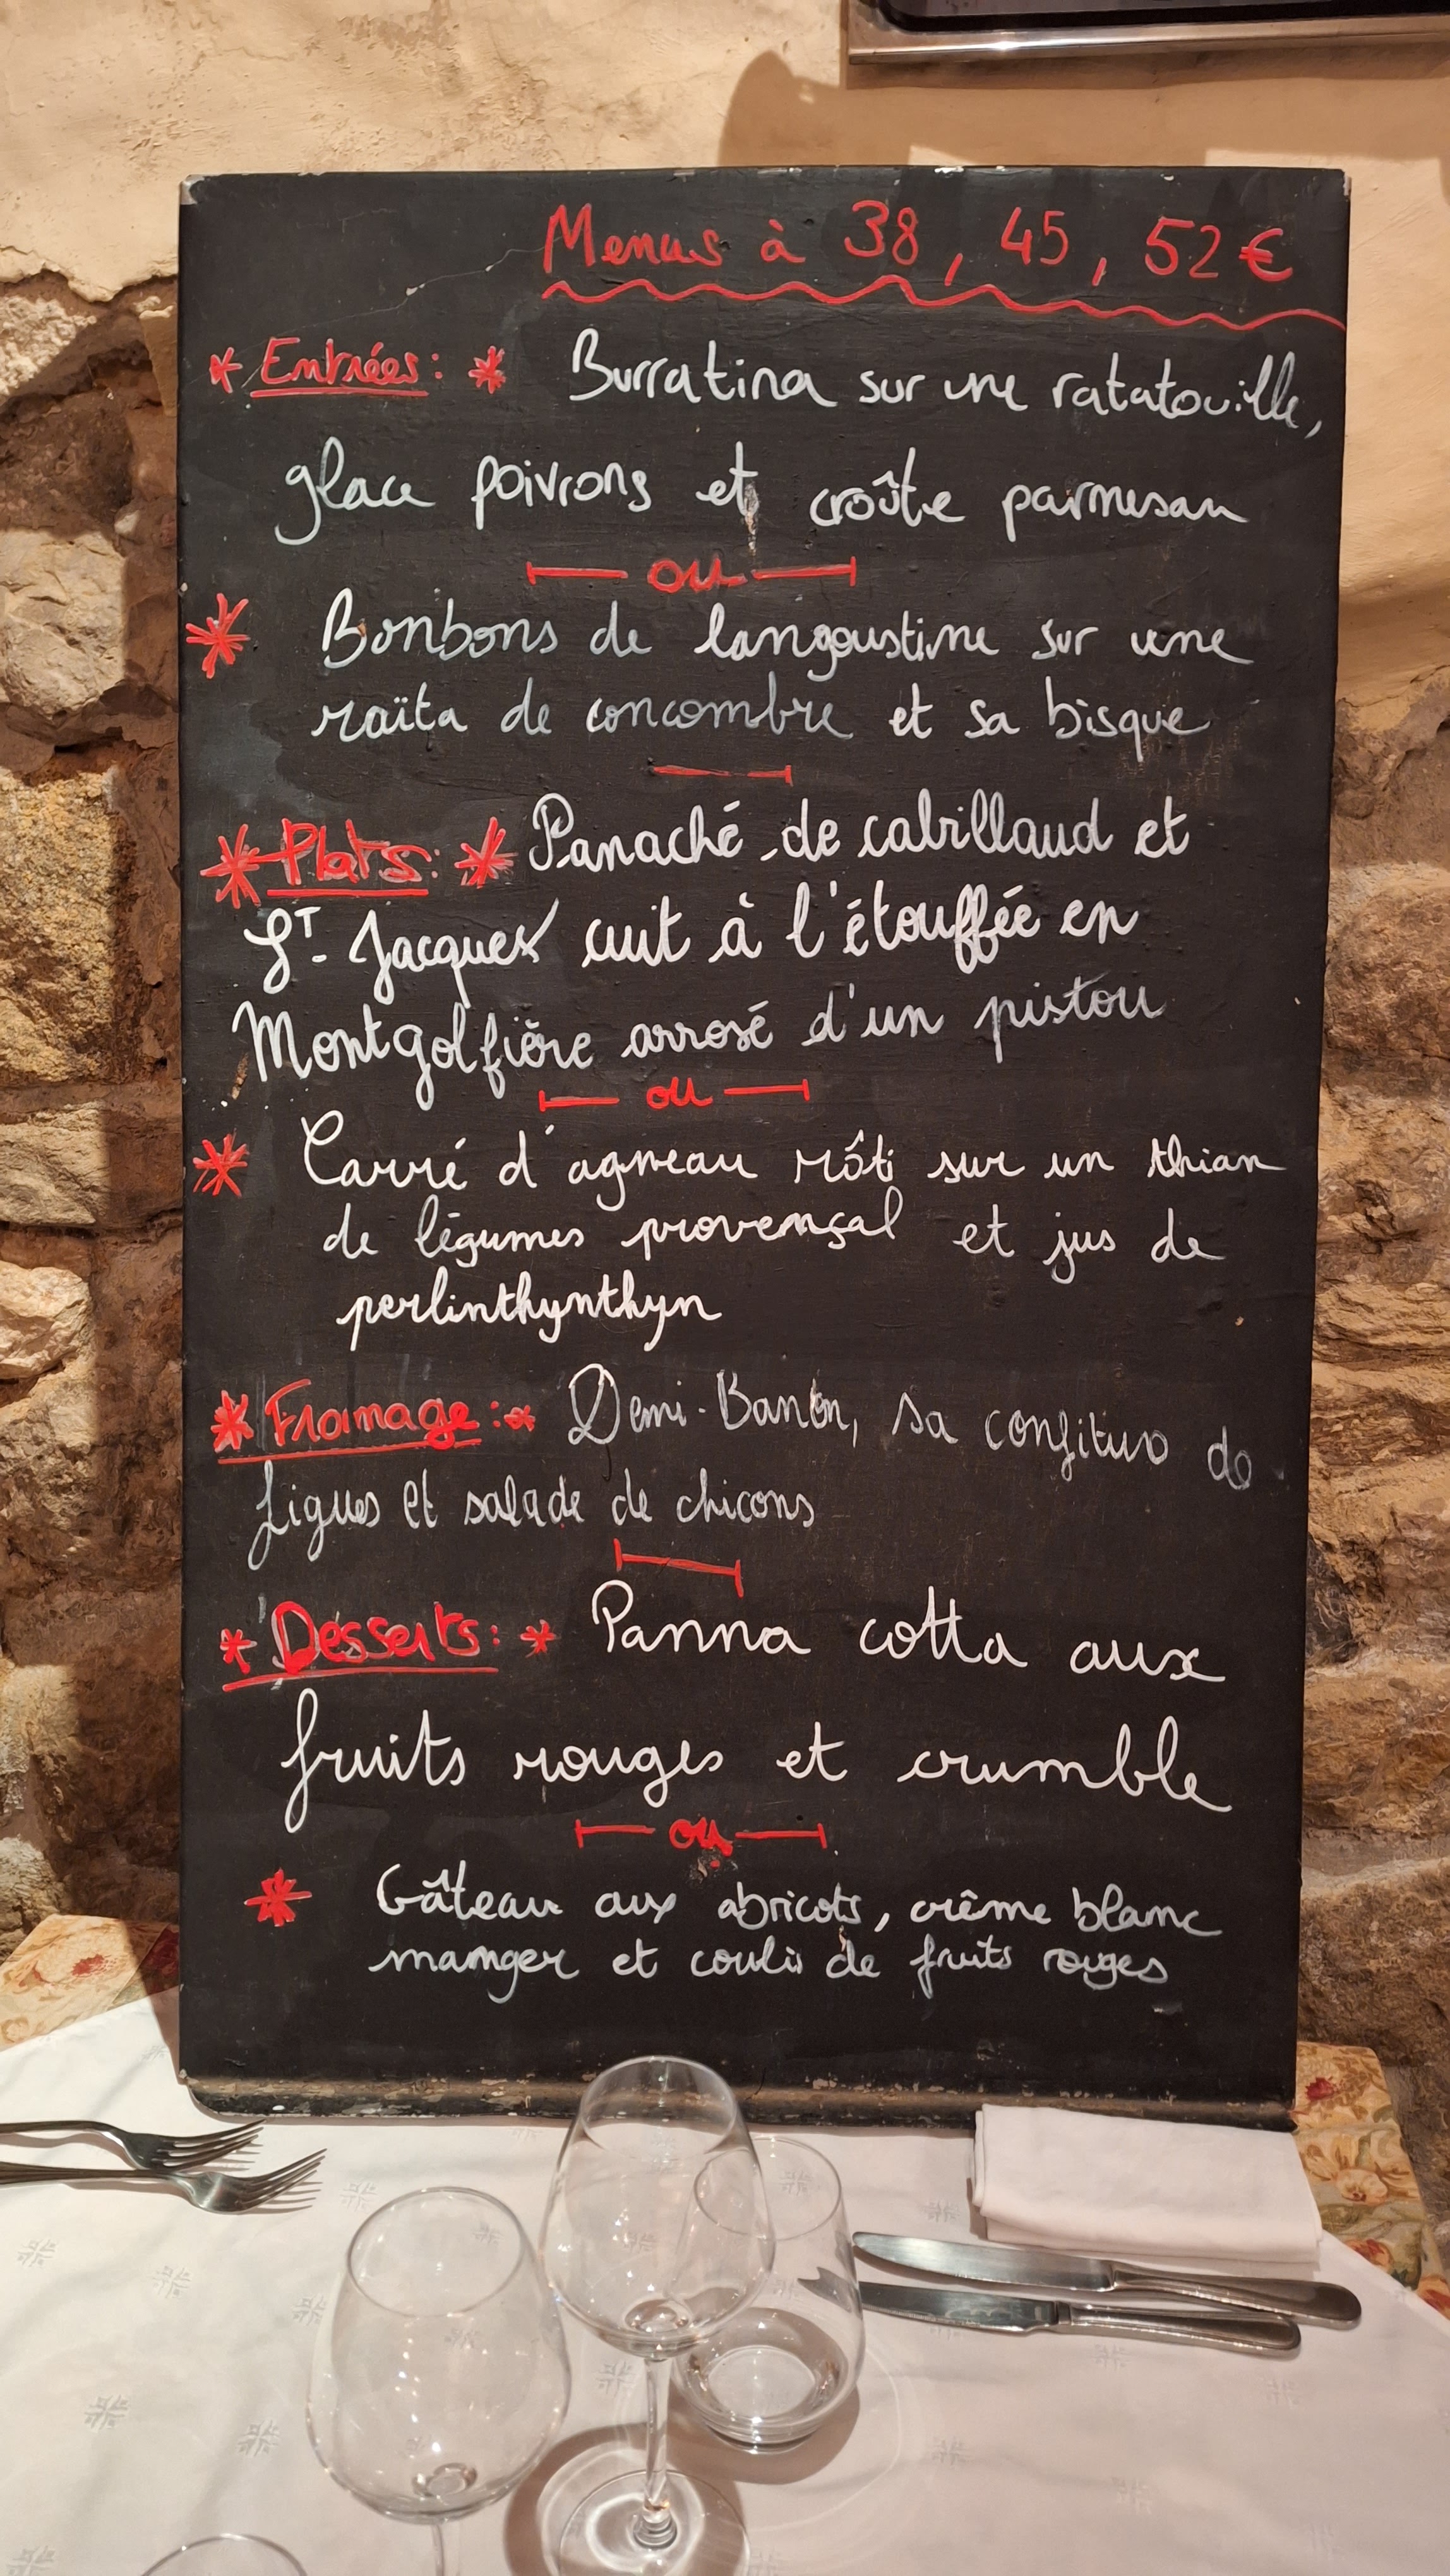 Menus à 38, 45, 52€
* Entrées: * Burratina sur une ratatouille,
glace poivrons et croûte parmesan
ou
* Bonbons de langoustine sur une
raïta de concombre et sa bisque
* Plats: * Panaché de cabillaud et
ST-Jacques cuit à l'étouffée en
Montgolfière arrosé d'un pistou
ou
* Carré d'agneau rôti sur un thian
de légumes provençal et jus de
perlinthynthyn
* Fromage: * Demi-Banon, sa confiture de
figues et salade de chicons
* Desserts: * Panna cotta aux
fruits rouges et crumble
ou
* Gâteau aux abricots, crème blanc
manger et coulis de fruits rouges